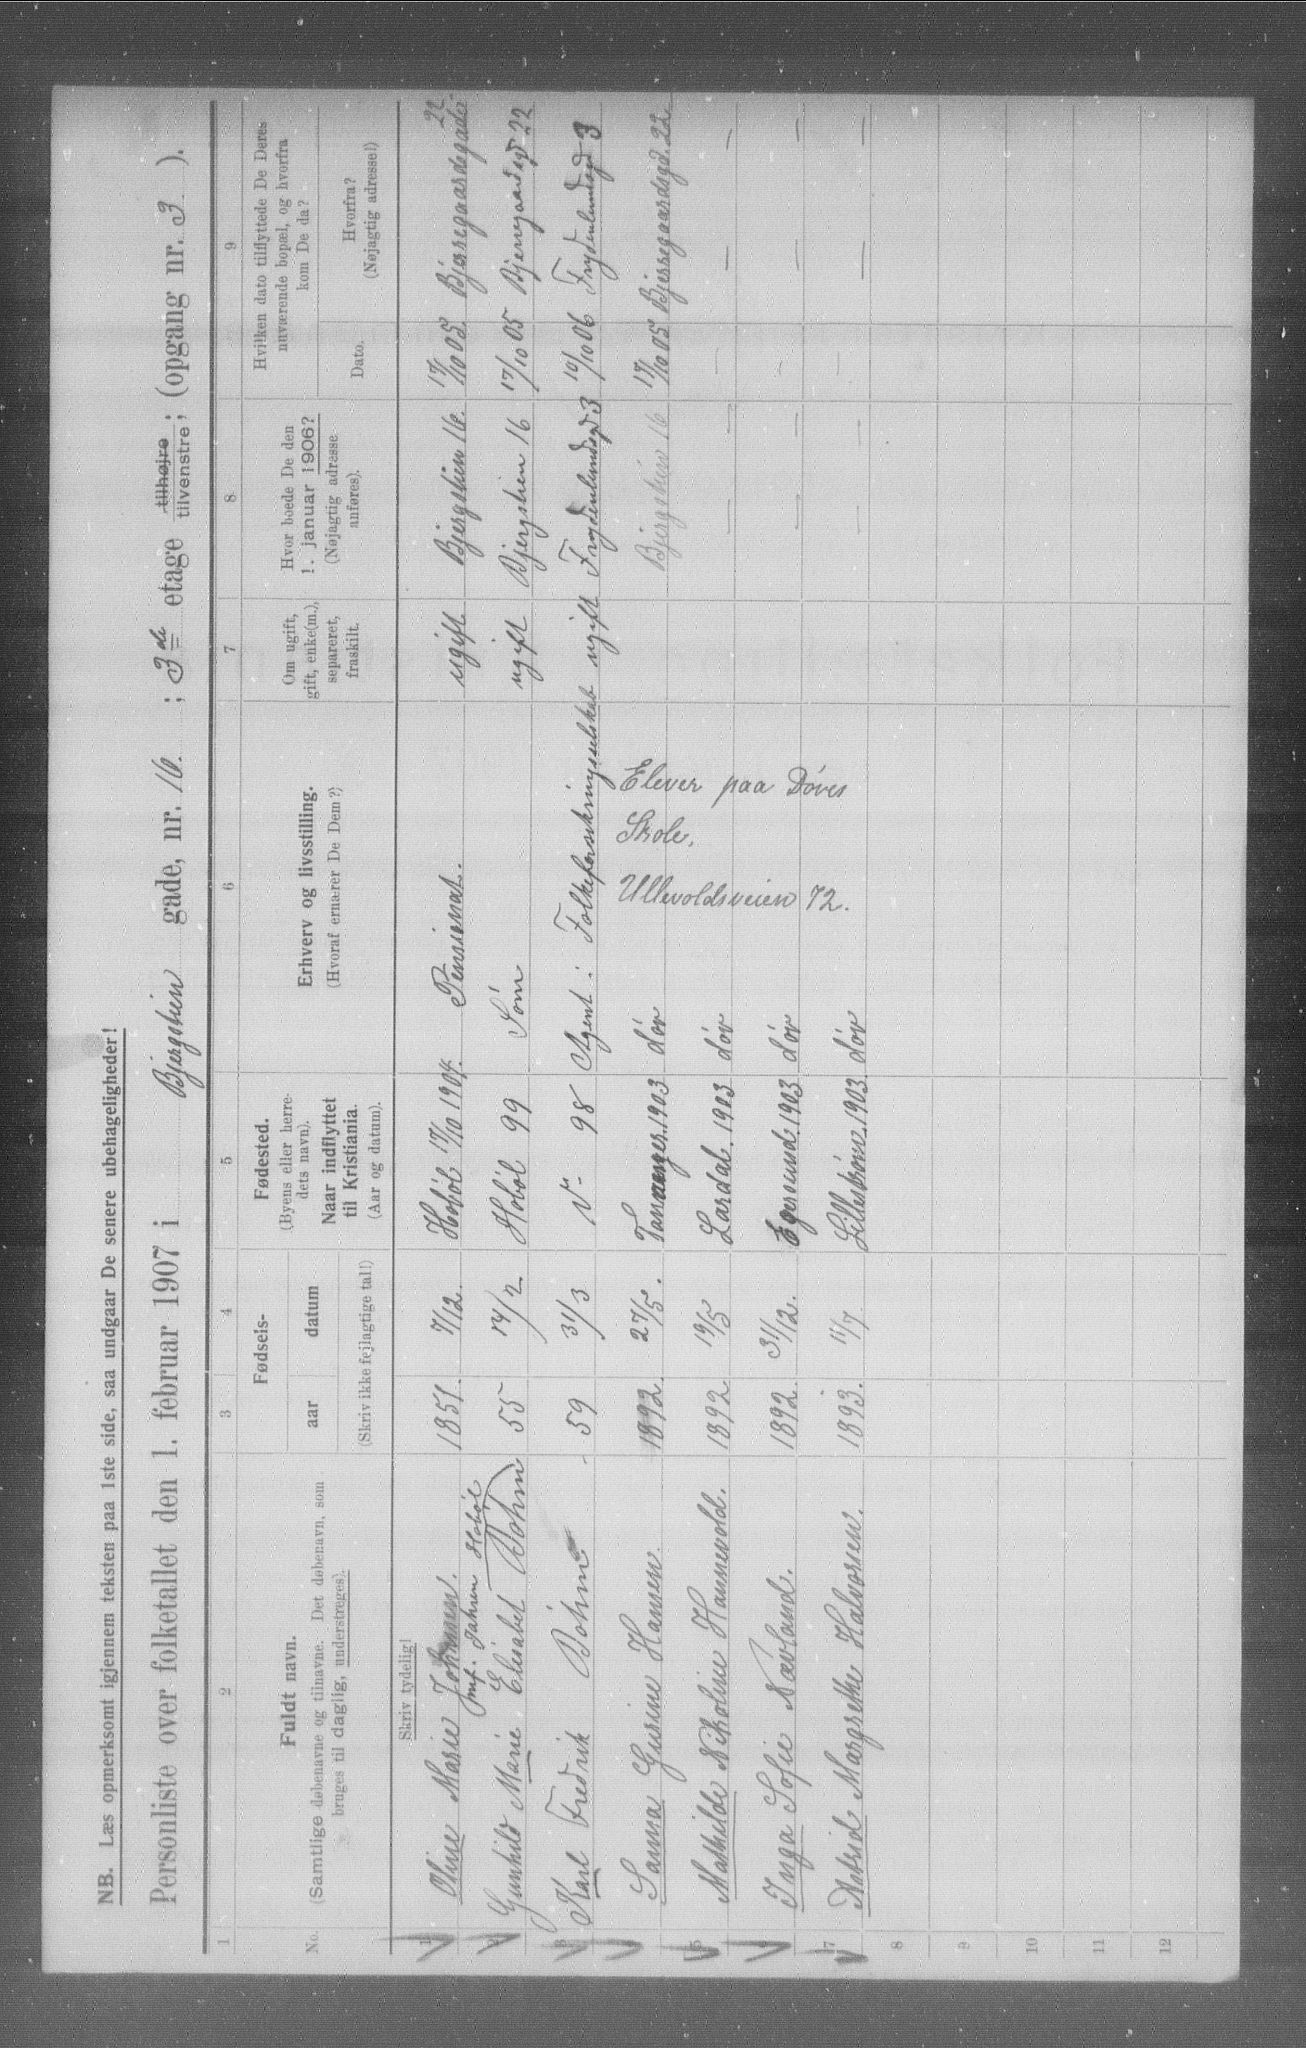 NB. Læs opmerksomt igjennem teksten paa 1ste side, saa undgaar De senere ubehageligheder!
Personliste over folketallet den 1. februar 1907 i Bjergstien gade, nr. 16. ; 3de etage tilhøjre tilvenstre ; (opgang nr. 3 ).
1 2 3 4 5 6 7 8 9
No.
Fuldt navn.
(Samtlige døbenavne og tilnavne. Det døbenavn, som
bruges til daglig, understreges).
Fødsels-
aar datum
(Skriv ikke fejlagtige tal!)
Fødested.
(Byens eller herre-
dets navn).
Naar indflyttet
til Kristiania.
(Aar og datum).
Erhverv og livsstilling.
(Hvoraf ernærer De Dem?)
Om ugift,
gift, enke(m.),
separeret,
fraskilt.
Hvor boede De den
1. januar 1906?
(Nøjagtig adresse
anføres).
Hvilken dato tilflyttede De Deres
nuværende bopæl, og hvorfra
kom De da?
Dato.
Hvorfra?
(Nøjagtig adresse!)
Skriv tydelig!
1 Oline Marie 1851. 7/12. Hobøl 17/10 1904. Pensionat. ugift Bjergstien 16. 17/10 05 Bjerregaardsgade 22
Hobøl
2 Gunhild Marie Elisabet Bøhm 55 14/2 Hobøl 99 Søm ugift Bjergstien 16 17/10 05 Bjerregaardsgd 22
3 Karl Fredrik Bøhm 59 31/3 98 Agent i Folkeforsikringsselskab ugift Frydenlundsgd 3 10/10 06 Frydenlundsgd 3
Sanna Gurine Hansen. 1892. 27/5. 1903 døv Bjergstien 16 17/10 05 Bjerregaardsgd. 22
5 Mathilde Nikoline Hannevold. 1892 19/5 Lardal. 1903 døv — — — —
Inga Sofie Nævland. 1892. 31/12. Egersund. 1903 døv — — — — —
7 Astrid Margrethe Halvorsen. 1893. 11/7. Lillestrøm. 1903. døv — — — — —
Elever paa Døves
Skole,
Ullevoldsveien 72.
8
9
10
11
12